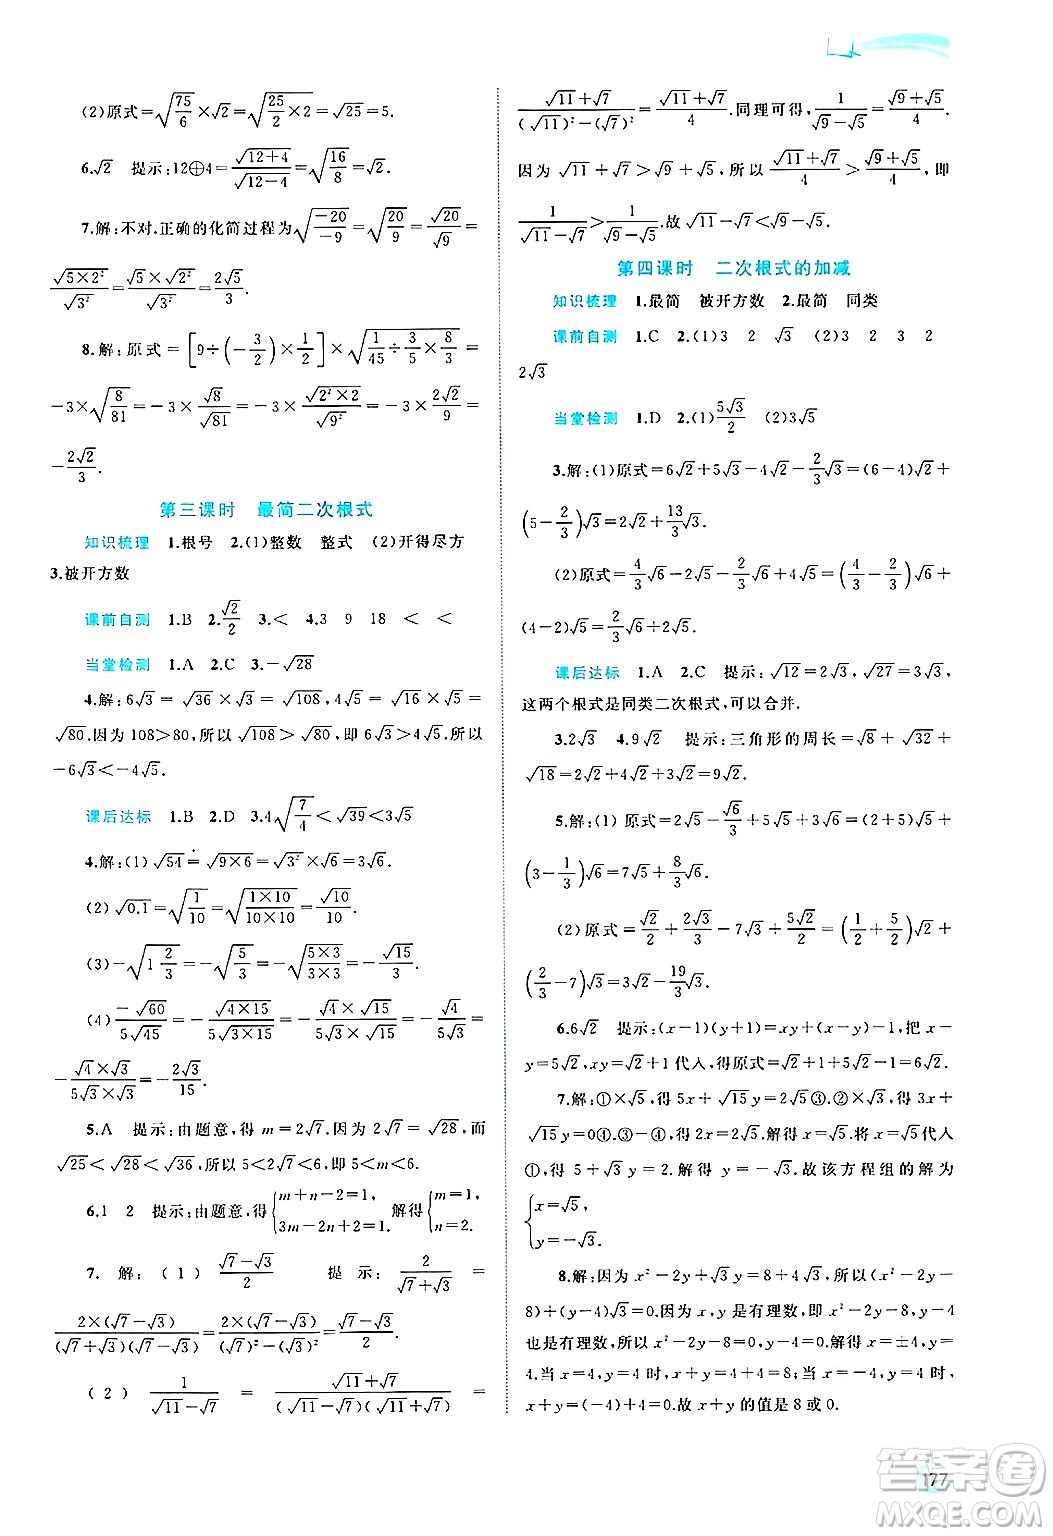 (2)原式=√(75/6)×√2=√(25/2×2)=√25=5.
6.√2 提示:12⊕4=√(12+4)/√(12-4)=√(16/8)=√2.
7.解:不对.正确的化简过程为√(-20/-9)=√(20/9)=√20/√9=
√(5×2²)/√3²=√5×√2²/√3²=2√5/3.
8.解:原式=[9÷(-3/2)×1/2]×√(1/45÷3/5×8/3)=
-3×√(8/81)=-3×√8/√81=-3×√(2²×2)/√9²=-3×2√2/9=
-2√2/3.
第三课时 最简二次根式
知识梳理 1.根号 2.(1)整数 整式 (2)开得尽方
3.被开方数
课前自测 1.B 2.√2/2 3.< 4.3 9 18 < <
当堂检测 1.A 2.C 3.-√28
4.解:6√3=√36×√3=√108,4√5=√16×√5=
√80.因为108>80,所以√108>√80,即6√3>4√5.所以
-6√3<-4√5.
课后达标 1.B 2.D 3.4√(7/4)<√39<3√5
4.解:(1)√54=√(9×6)=√3²×√6=3√6.
(2)√0.1=√(1/10)=√(1×10/10×10)=√10/10.
(3)-√(1 2/3)=-√(5/3)=-√(5×3/3×3)=-√15/3.
(4)-√60/5√45=-√(4×15)/5√(3×15)=-√4×√15/5√3×√15=-√4/5√3=
-√4×√3/5√3×√3=-2√3/15.
5.A 提示:由题意,得m=2√7.因为2√7=√28,而
√25<√28<√36,所以5<2√7<6,即5<m<6.
6.1 2 提示:由题意,得{m+n-2=1, 3m-2n+2=1. 解得{m=1, n=2.
7.解:(1)(√7-√3)/2 提示:2/(√7+√3)=
2×(√7-√3)/(√7+√3)(√7-√3)=2×(√7-√3)/((√7)²-(√3)²)=(√7-√3)/2.
(2)1/(√11-√7)=(√11+√7)/(√11-√7)(√11+√7)=
(√11+√7)/((√11)²-(√7)²)=(√11+√7)/4.同理可得,1/(√9-√5)=(√9+√5)/4.
因为√11+√7>√9+√5,所以(√11+√7)/4>(√9+√5)/4,即
1/(√11-√7)>1/(√9-√5).故√11-√7<√9-√5.
第四课时 二次根式的加减
知识梳理 1.最简 被开方数 2.最简 同类
课前自测 1.C 2.(1)3 2 √3 (2)3 2 3 2
2√3
当堂检测 1.D 2.(1)5√3/2 (2)3√5
3.解:(1)原式=6√2+5√3-4√2-2/3√3=(6-4)√2+
(5-2/3)√3=2√2+13/3√3.
(2)原式=4/3√6+4√5-2/3√6-2√5=(4/3-2/3)√6+
(4-2)√5=2/3√6+2√5.
课后达标 1.A 2.C 提示:√12=2√3,√27=3√3,
这两个根式是同类二次根式,可以合并.
3.2√3 4.9√2 提示:三角形的周长=√8+√32+
√18=2√2+4√2+3√2=9√2.
5.解:(1)原式=2√5-√6/3+5√5+3√6=(2+5)√5+
(3-1/3)√6=7√5+8/3√6.
(2)原式=√2/2+2√3/3-7√3+5√2/2=(1/2+5/2)√2+
(2/3-7)√3=3√2-19/3√3.
6.6√2 提示:(x-1)(y+1)=xy+(x-y)-1,把x-
y=5√2,xy=√2+1代入,得原式=√2+1+5√2-1=6√2.
7.解:①×√5,得5x+√15y=2√5③.②×√3,得3x+
√15y=0④.③-④,得2x=2√5.解得x=√5.将x=√5代入
①,得5+√3y=2.解得y=-√3.故该方程组的解为
{x=√5,
y=-√3.
8.解:因为x²-2y+√3y=8+4√3,所以(x²-2y-
8)+(y-4)√3=0.因为x,y是有理数,即x²-2y-8,y-4
也是有理数,所以x²-2y-8=0,y-4=0.解得x=±4,y=
4.当x=4,y=4时,x+y=4+4=8;当x=-4,y=4时,
x+y=(-4)+4=0.故x+y的值是8或0.
177
答案圈
MXQE.COM